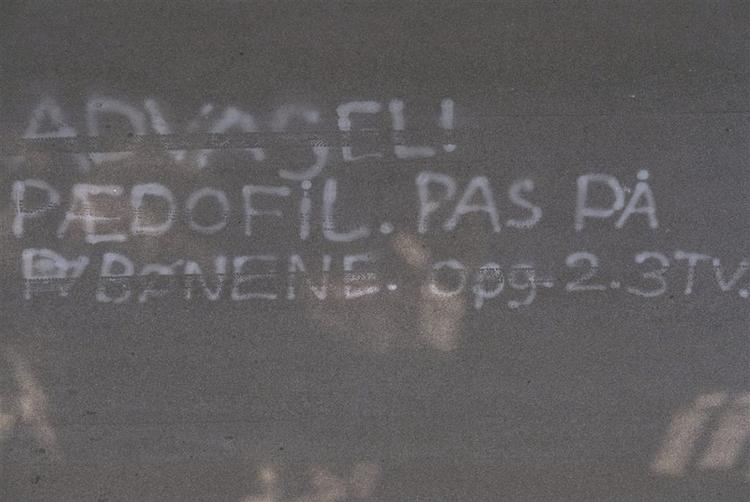 ADVARSEL!
PÆDOFIL. PAS PÅ
BØNENE. opg. 2.3TV.